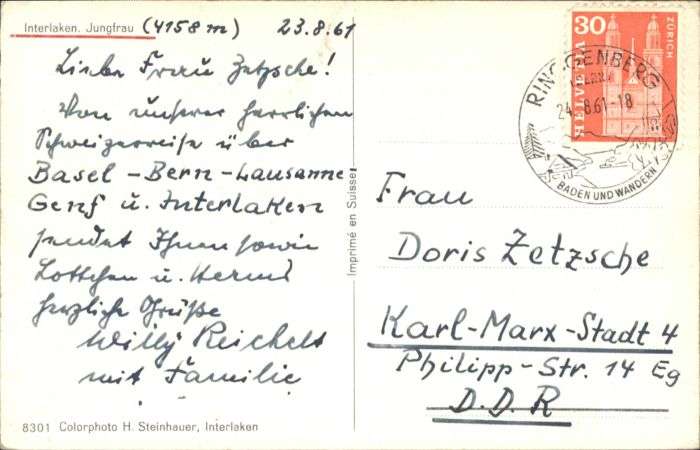 Interlaken. Jungfrau (4158 m) 23.8.61
Liebe Frau Zetzsche!
Von unserer herrlichen
Schweizerreise über
Basel - Bern - Lausanne
Genf u. Interlaken
sendet Ihnen sowie
Lottchen u.
herzliche Grüße
Willy Reichelt
mit Familie
8301 Colorphoto H. Steinhauer, Interlaken
Imprimé en Suisse
30
HELVETIA
ZÜRICH
RINGGENBERG
(BERN)
24.8.61-18
BADEN UND WANDERN
Frau
Doris Zetzsche
Karl-Marx-Stadt 4
Philipp-Str. 14 Eg
D.D.R